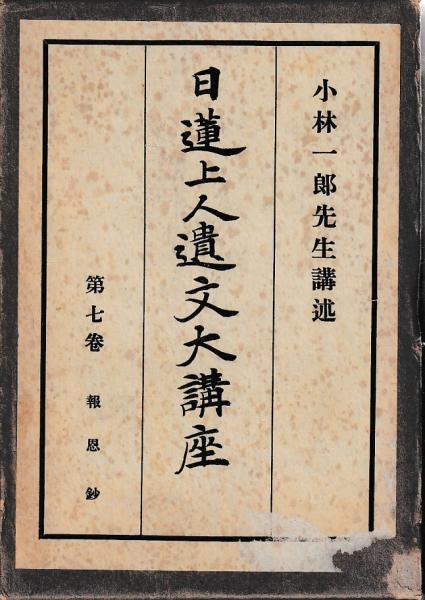 小林一郎先生講述
日蓮上人遺文大講座
第七卷 報恩鈔